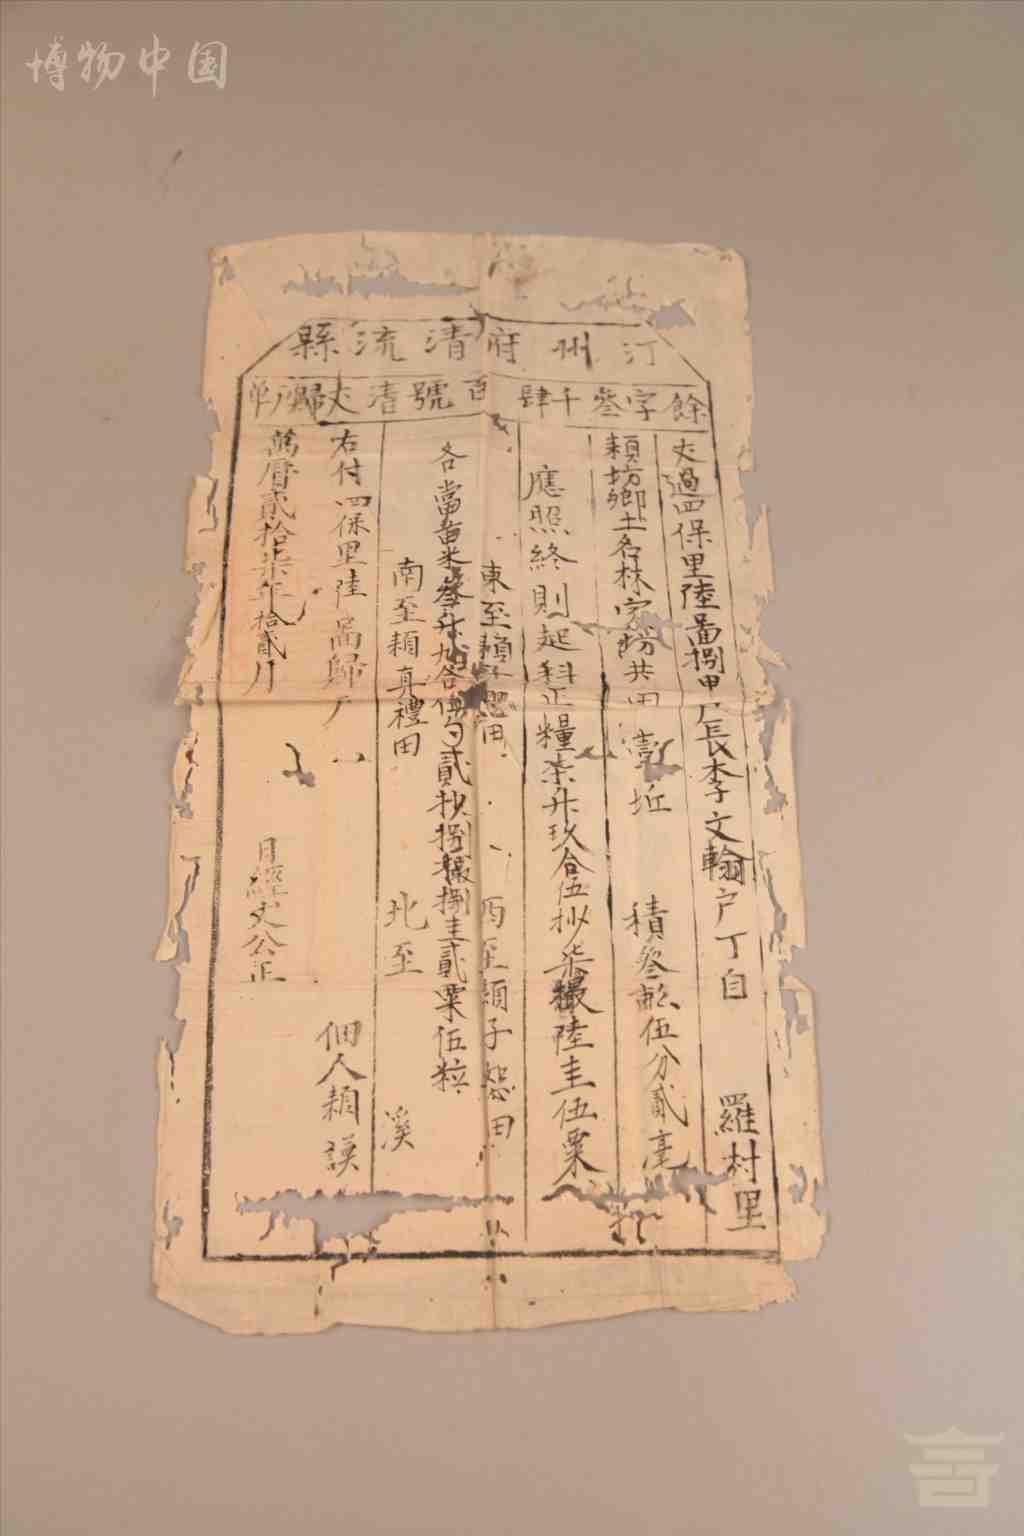 博物中国
汀州府清流縣
餘字叄千肆百號清丈歸户单
丈過四保里陸啚捌甲户長李文翰户丁自 羅村里
頼坊鄉土名林家坊共田壹坵 積叄畝伍分貳毫
應照終則起科正糧柒升玖合伍抄柒撮陸圭伍粟
東至頼 田 西至頼子恕田
各當畝米叁升九合伍勺貳抄捌撮捌圭貳粟伍粒
南至頼真禮田 北至 溪
右付四保里陸啚歸户 佃人頼謨
萬曆貳拾柒年拾貳月 日經丈公正